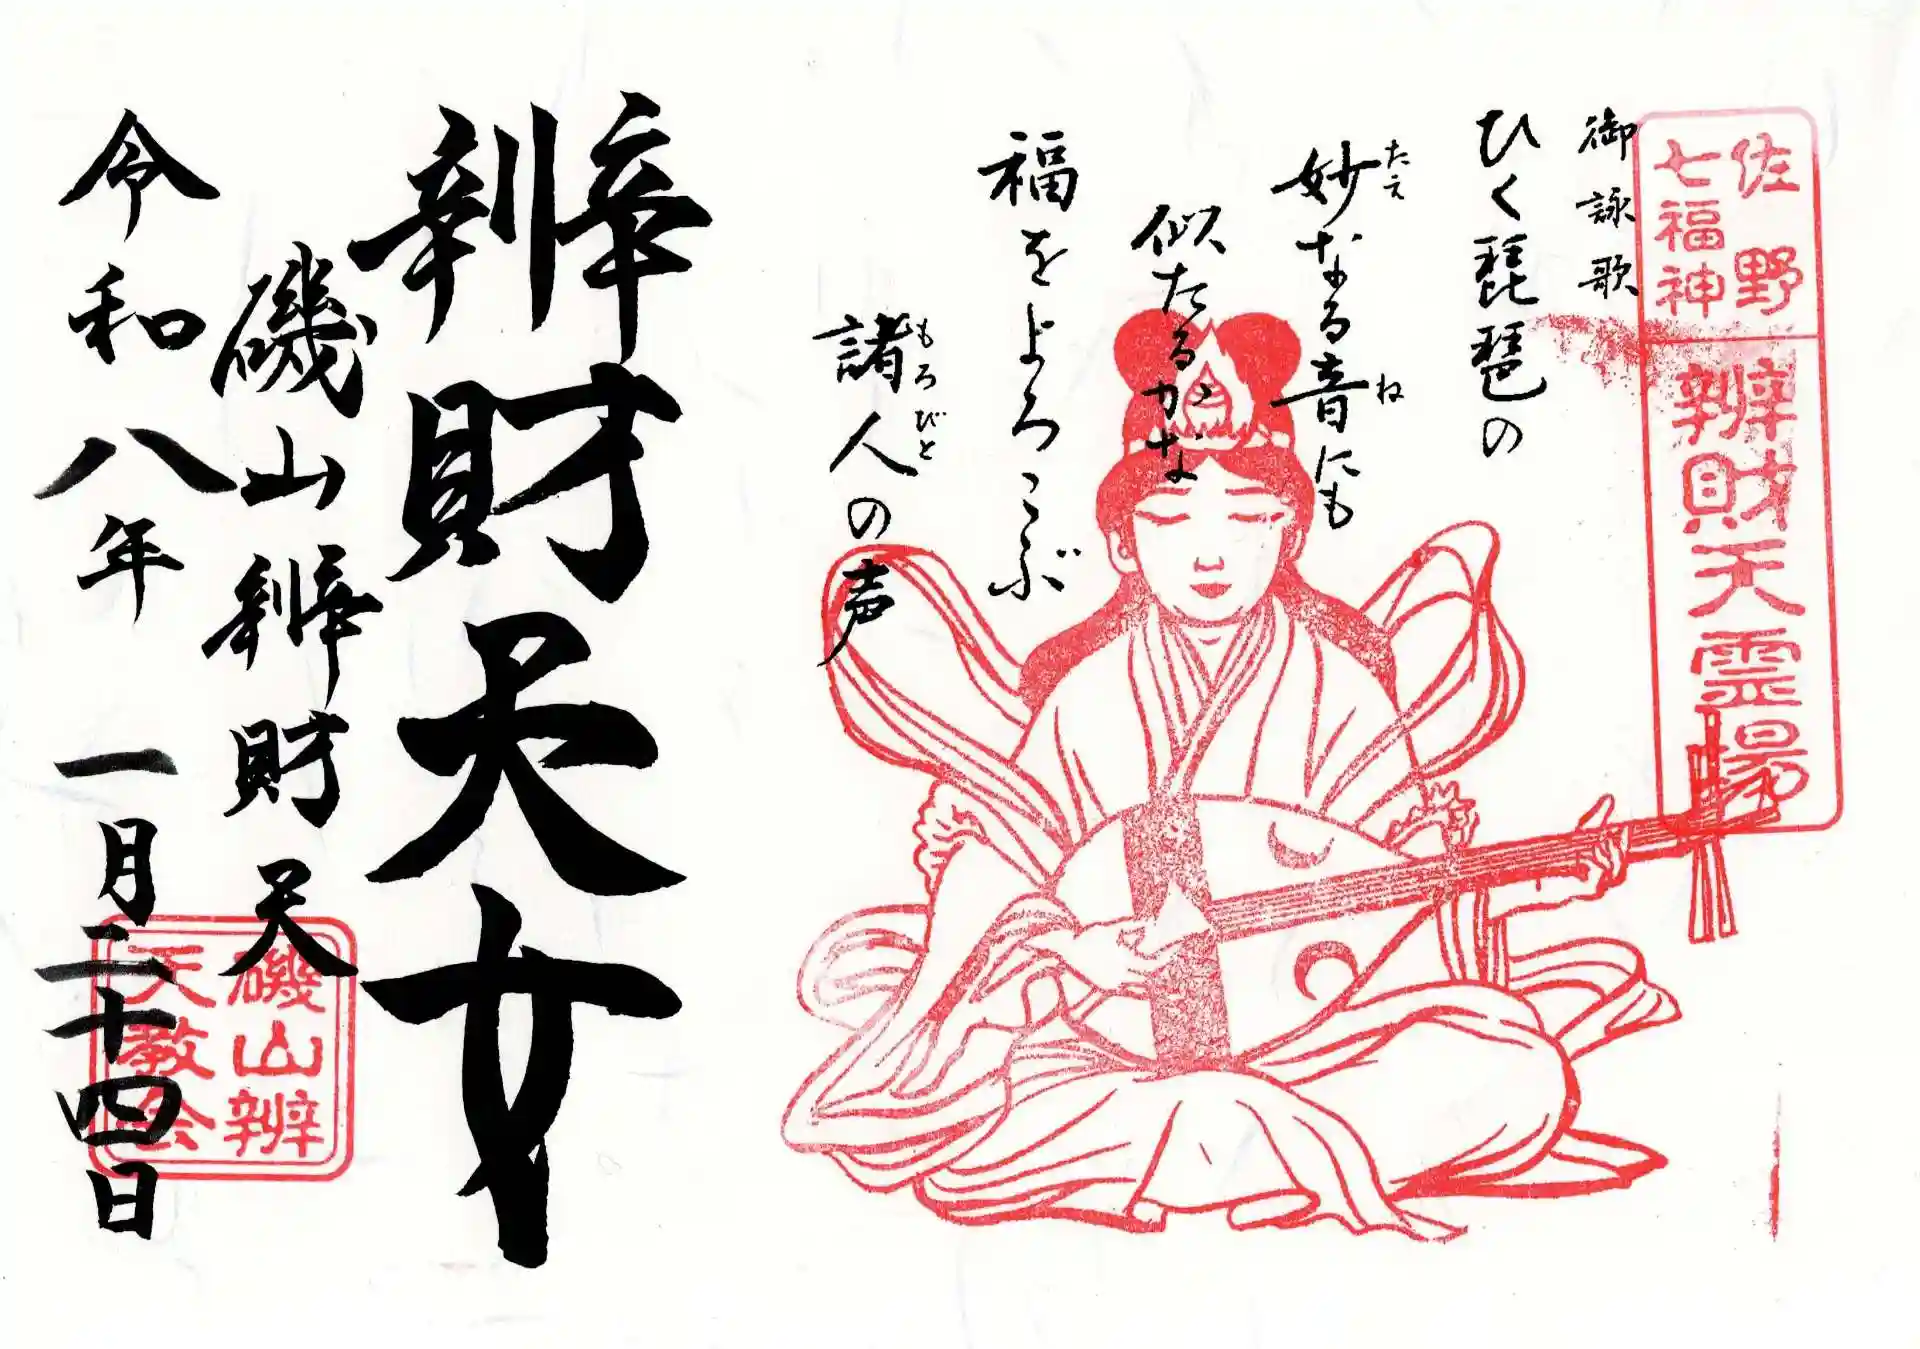 佐野
七福神
辨財天霊場
御詠歌
ひく琵琶の
妙なる音にも
たえ
ね
似たるかな
福をよろこぶ
諸人の声
もろびと
辨財天女
磯山辨財天
令和八年 一月二十四日
磯山辨
天教会